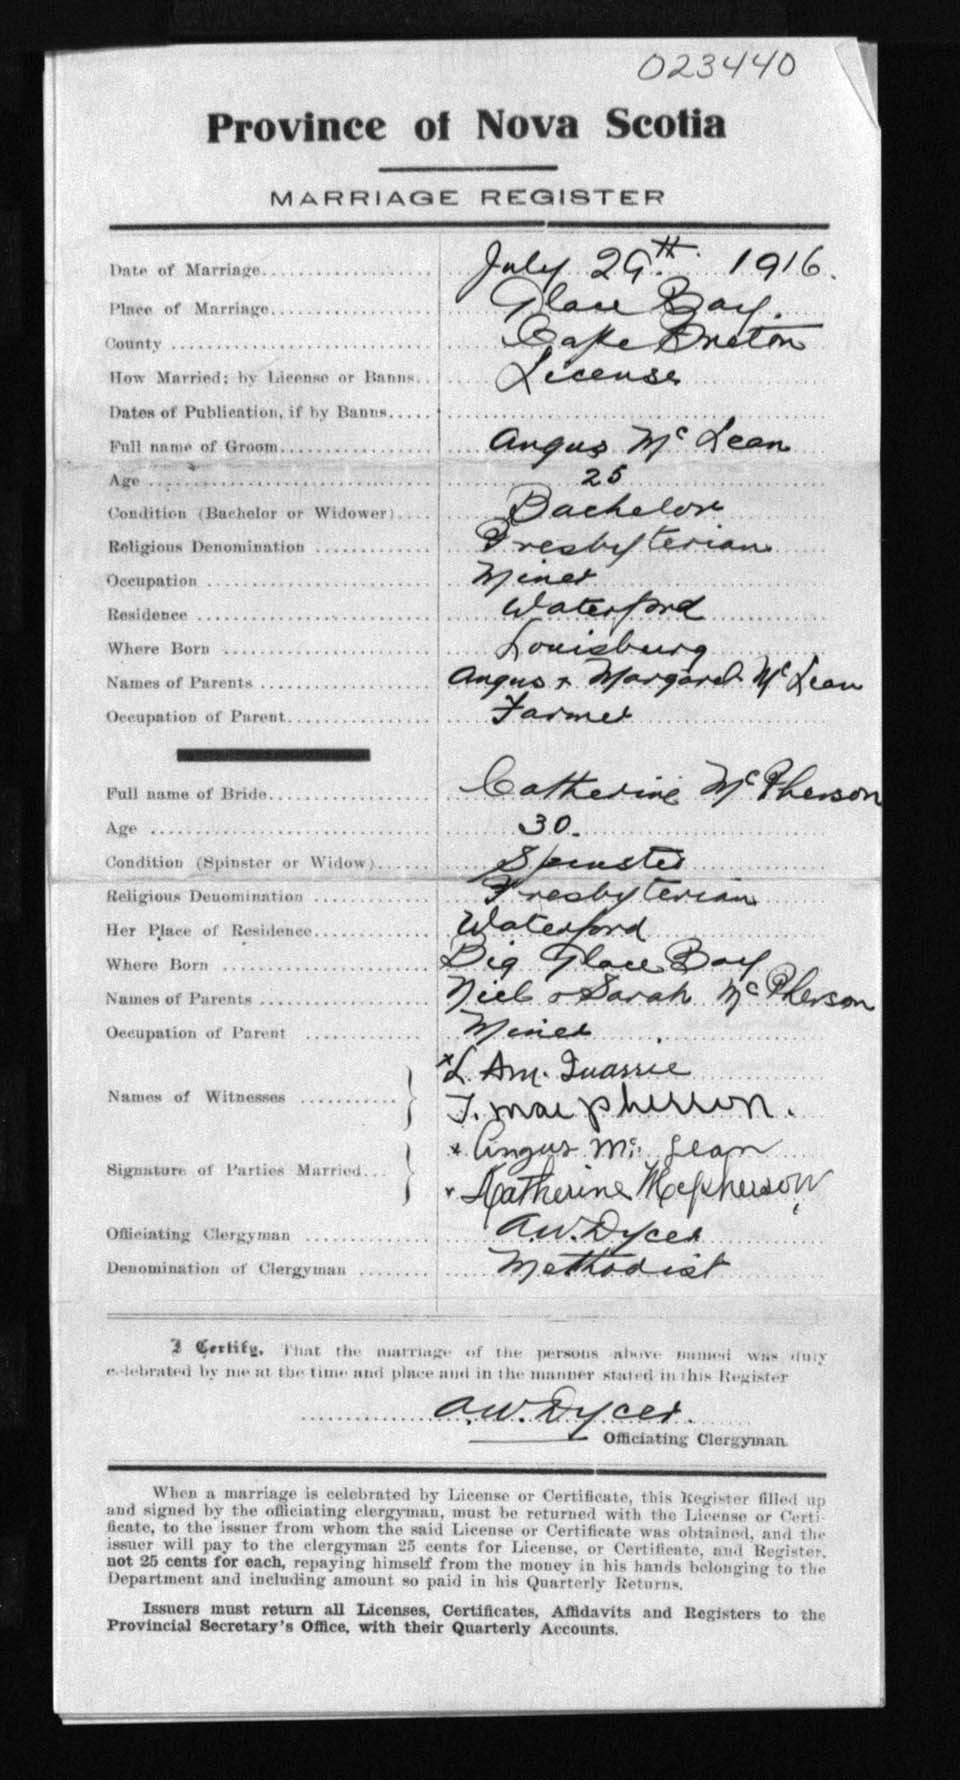 023440
Province of Nova Scotia
MARRIAGE REGISTER
Date of Marriage.................... July 29th. 1916.
Place of Marriage................... Glace Bay.
County ................................ Cape Breton
How Married; by License or Banns.. License
Dates of Publication, if by Banns.....
Full name of Groom.................. Angus Mc Lean
Age ................................... 25
Condition (Bachelor or Widower).... Bachelor
Religious Denomination ............. Presbyterian
Occupation ........................... Miner
Residence ............................ Waterford
Where Born .......................... Louisburg
Names of Parents .................... Angus + Margaret Mc Lean
Occupation of Parent................. Farmer
Full name of Bride................... Catherine McPherson
Age ................................... 30.
Condition (Spinster or Widow)...... Spinster
Religious Denomination ............. Presbyterian
Her Place of Residence.............. Waterford
Where Born .......................... Big Glace Bay
Names of Parents .................... Niel & Sarah McPherson
Occupation of Parent ............... Miner
x L. Am.
Names of Witnesses ...........
J. Macpherson.
x Angus Mc. Lean
Signature of Parties Married...
x Katherine McPherson
Officiating Clergyman .............. A.W. Dycer
Denomination of Clergyman ........ Methodist
I Certify, That the marriage of the persons above named was duly
celebrated by me at the time and place and in the manner stated in this Register
A.W. Dycer.
Officiating Clergyman.
When a marriage is celebrated by License or Certificate, this Register filled up
and signed by the officiating clergyman, must be returned with the License or Certi-
ficate, to the issuer from whom the said License or Certificate was obtained, and the
issuer will pay to the clergyman 25 cents for License, or Certificate, and Register,
not 25 cents for each, repaying himself from the money in his hands belonging to the
Department and including amount so paid in his Quarterly Returns.
Issuers must return all Licenses, Certificates, Affidavits and Registers to the
Provincial Secretary's Office, with their Quarterly Accounts.